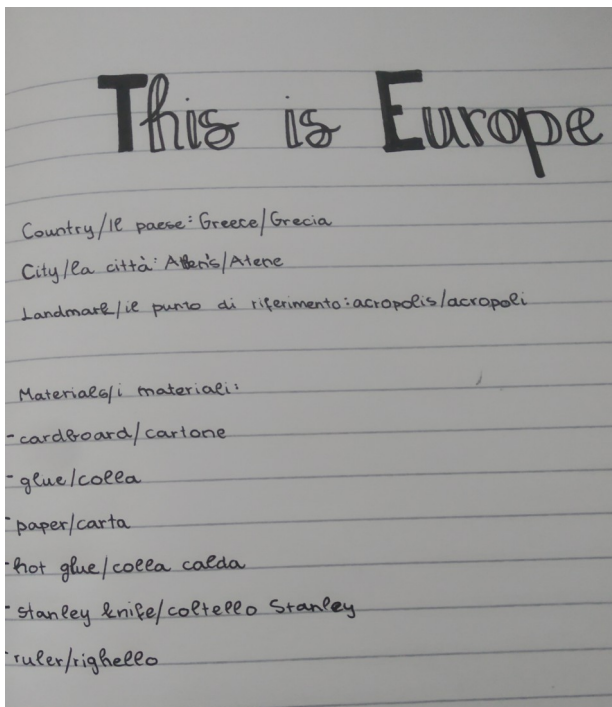 This is Europe
Country/il paese: Greece/Grecia
City/la città: Athen's/Atene
Landmark/il punto di riferimento: acropolis/acropoli
Materials/i materiali:
-cardboard/cartone
-glue/colla
-paper/carta
-hot glue/colla calda
-stanley knife/coltello Stanley
-ruler/righello